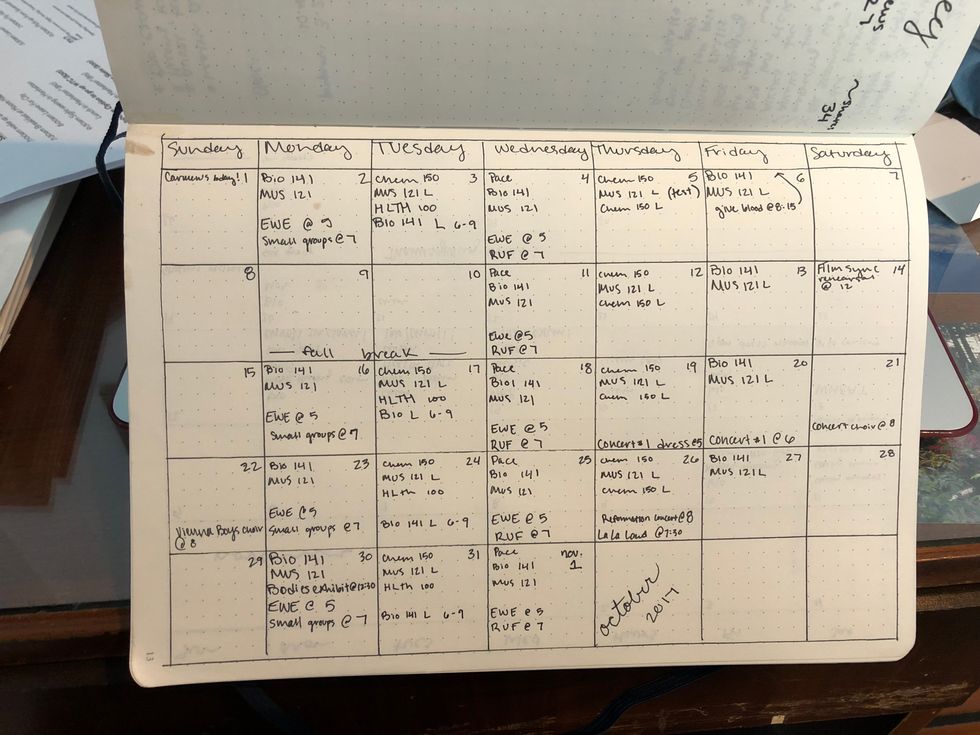 Sunday Monday Tuesday Wednesday Thursday Friday Saturday
1
Bio 141 2
MUS 121
EWE @ 5
Small groups @ 7
Chem 150 3
MUS 121 L
HLTH 100
Bio 141 L 6-9
Pace 4
Bio 141
MUS 121
EWE @ 5
RUF @ 7
Chem 150 5
MUS 121 L (test)
Chem 150 L
Bio 141 6
MUS 121 L
give blood @ 8:15
7
8
9
10
— fall break —
Pace 11
Bio 141
MUS 121
EWE @ 5
RUF @ 7
Chem 150 12
MUS 121 L
Chem 150 L
Bio 141 13
MUS 121 L
Film Sync 14
rehearsal
@ 12
15
Bio 141 16
MUS 121
EWE @ 5
Small groups @ 7
Chem 150 17
MUS 121 L
HLTH 100
Bio L 6-9
Pace 18
Bio 141
MUS 121
EWE @ 5
RUF @ 7
Chem 150 19
MUS 121 L
Chem 150 L
Concert #1 dress @5
Bio 141 20
MUS 121 L
Concert #1 @ 6
21
Concert choir @ 8
22
Vienna Boys choir
@ 8
Bio 141 23
MUS 121
EWE @ 5
Small groups @ 7
Chem 150 24
MUS 121 L
HLTH 100
Bio 141 L 6-9
Pace 25
Bio 141
MUS 121
EWE @ 5
RUF @ 7
Chem 150 26
MUS 121 L
Chem 150 L
Reformation concert @ 8
La La Land @ 7:30
Bio 141 27
MUS 121 L
28
29
Bio 141 30
MUS 121
Bodies exhibit @ 12:30
EWE @ 5
Small groups @ 7
Chem 150 31
MUS 121 L
HLTH 100
Bio 141 L 6-9
Pace nov.
Bio 141 1
MUS 121
EWE @ 5
RUF @ 7
october
2017
13